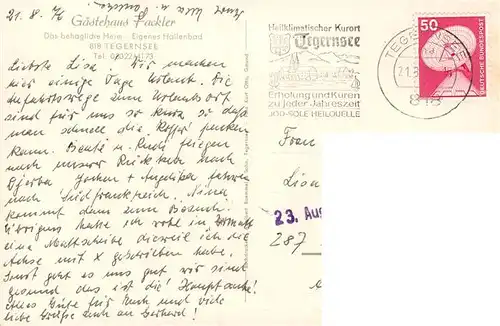 21. 8.
Gästehaus Fackler
Das behagliche Heim · Eigenes Hallenbad
818 TEGERNSEE
Tel. 08022/4173
Liebste Lisa! Wir machen
hier einige Tage Urlaub. Die
Anfahrtswege zum Urlaubsort
sind für uns so kurz, so daß
man schnell die Koffer packen
kann. Beate u. Rudi fliegen
nach unserer Rückkehr nach
Djerba, Jochen + Angelika fahren
nach Südfrankreich. Nina
kommt dann zum Besuch.
Übrigens habe ich wohl in
eine Mattscheibe dieweil ich die
Achse mit X geschrieben habe.
Sonst geht es uns gut wir sind
gesund das ist die Hauptsache!
Alles Gute für Euch und viele
liebe Grüße auch an Gerhard!
Heilklimatischer Kurort
Tegernsee
Erholung und Kuren
zu jeder Jahreszeit
JOD-SOLE HEILQUELLE
TEGERNSEE
21.8
818
50
DEUTSCHE BUNDESPOST
Frau
Lisa
23. Aug
287